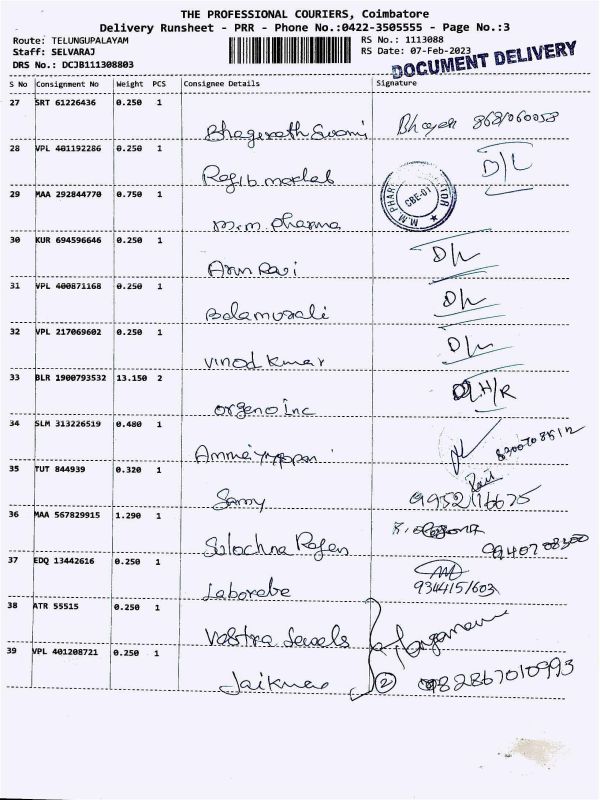 THE PROFESSIONAL COURIERS, Coimbatore
Delivery Runsheet - PRR - Phone No.:0422-3505555 - Page No.:3
Route: TELUNGUPALAYAM
RS No.: 1113088
Staff: SELVARAJ
RS Date: 07-Feb-2023
DRS No.: DCJB111308803
DOCUMENT DELIVERY
S No Consignment No Weight PCS Consignee Details Signature
27 SRT 61226436 0.250 1
Bhagerath Swami
28 VPL 401192286 0.250 1
D/L
29 MAA 292844770 0.750 1
M.M PHAR
CBE-01
m.m. pharma
30 KUR 694596646 0.250 1
Arun Ravi D/L
31 VPL 400871168 0.250 1
Balamurali D/L
32 VPL 217069602 0.250 1
Vinod Kumar D/L
33 BLR 1900793532 13.150 2
orgeno Inc H/R
34 SLM 313226519 0.480 1
35 TUT 844939 0.320 1
Samy 9952116675
36 MAA 567829915 1.290 1
Sulochna Rajen
37 EDQ 13442616 0.250 1
9344151603
38 ATR 55515 0.250 1
Vastra Jewels
39 VPL 401208721 0.250 1
Jaikumar 2